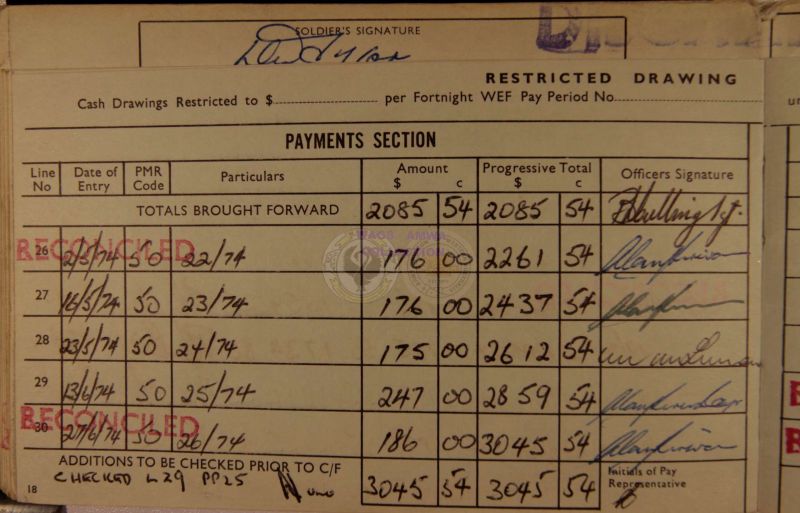 SOLDIER'S SIGNATURE
RESTRICTED DRAWING
Cash Drawings Restricted to $ per Fortnight WEF Pay Period No
PAYMENTS SECTION
Line No Date of Entry PMR Code Particulars Amount $ c Progressive Total $ c Officers Signature
TOTALS BROUGHT FORWARD 2085 54 2085 54
RECONCILED
26 2/5/74 50 22/74 176 00 2261 54
27 16/5/74 50 23/74 176 00 2437 54
28 23/5/74 50 24/74 175 00 2612 54
29 13/6/74 50 25/74 247 00 2859 54
RECONCILED
30 27/6/74 50 26/74 186 00 3045 54
ADDITIONS TO BE CHECKED PRIOR TO C/F
CHECKED L29 PP25 3045 54 3045 54 Initials of Pay Representative
18